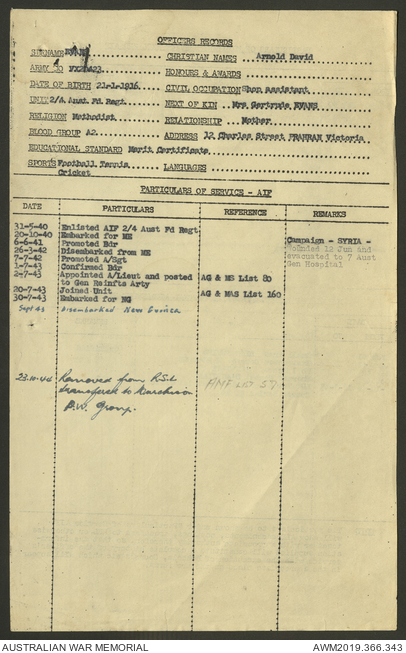 OFFICERS RECORDS
SURNAME EVANS CHRISTIAN NAMES Arnold David
ARMY NO HONOURS & AWARDS
DATE OF BIRTH 21-1-1916 CIVIL OCCUPATION Shop assistant
UNIT 2/4 Aust. Fd Regt. NEXT OF KIN Mrs Gertrude EVANS
RELIGION Methodist RELATIONSHIP Mother
BLOOD GROUP A2. ADDRESS 12 Charles Street PRAHRAN Victoria
EDUCATIONAL STANDARD Merit Certificate
SPORTS Football Tennis LANGUAGES
Cricket
PARTICULARS OF SERVICE - AIF
DATE PARTICULARS REFERENCE REMARKS
31-5-40 Enlisted AIF 2/4 Aust Fd Regt
20-10-40 Embarked for ME
6-6-41 Promoted Bdr Campaign - SYRIA -
26-3-42 Disembarked from ME Wounded 12 Jun and
7-7-42 Promoted A/Sgt evacuated to 7 Aust
1-7-43 Confirmed Bdr Gen Hospital
2-7-43 Appointed A/Lieut and posted AG & MS List 80
to Gen Reinfts Arty
20-7-43 Joined Unit AG & MAS List 160
30-7-43 Embarked for NG
Sept 43 Disembarked New Guinea
23.10.44 Removed from R.S.L AMF LIST 57
transferred to Murchison
P.W. Group.
AUSTRALIAN WAR MEMORIAL AWM2019.366.343